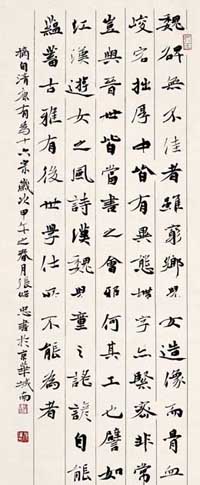 魏碑無不佳者雖窮鄉兒女造像而骨血
峻宕拙厚中皆有異態構字亦緊密非常
豈與晉世皆當書之會邪何其工也譬如
江漢遊女之風詩漢魏兒童之謠諺自能
蘊蓄古雅有後世學仕所不能為者
摘自清康有為十六宗歲次甲午之春月張昭忠書於京華城南